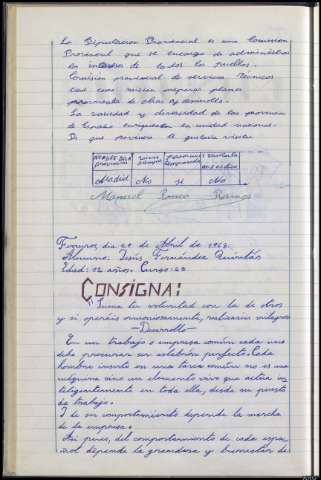 La Diputacion Provincial es una Comision
Provincial que se encarga de administrar
los intereses de todos los pueblos.
Comision provincial de servicios Técnicos
tiene como mision preparar planes
de obras y desarrollo.
La variedad y diversidad de las provincias
de España enriquecen la unidad nacional.
Madrid No si No
Manuel Ramos
dia 29 de Abril de 1968.
Alumno: Jesús Fernández Quintas
Edad: 12 años. Curso:
CONSIGNA:
"Suma tu voluntad con la de otros
y si operáis armoniosamente, realizaréis milagros
-Desarrollo-
En un trabajo o empresa común cada uno
debe procurar ser eslabón perfecto. Cada
hombre inserto en una tarea común no es una
máquina sino un elemento vivo que actúa in
teligentemente en toda ella, desde su puesto
de trabajo.
Y de su comportamiento depende la marcha
de la empresa.
Asi pues, del comportamiento de cada espa
ñol depende la grandeza y bienestar de